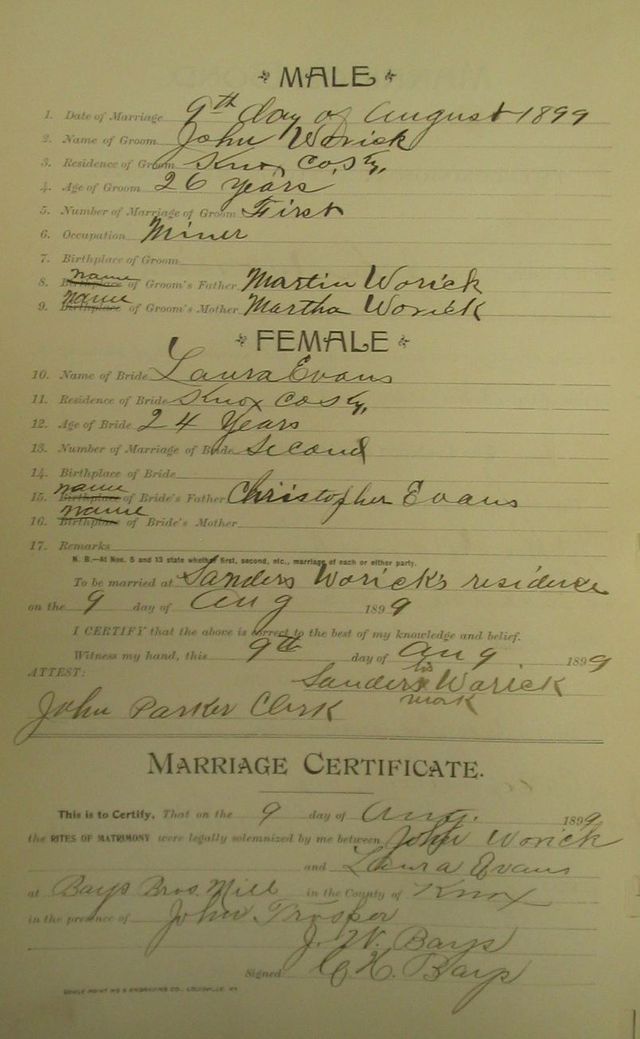 MALE
1. Date of Marriage 9th day of August 1899
2. Name of Groom John Worick
3. Residence of Groom Knox Co, Ky,
4. Age of Groom 26 Years
5. Number of Marriage of Groom First
6. Occupation Miner
7. Birthplace of Groom
8. Birthplace name of Groom's Father Martin Worick
9. Birthplace name of Groom's Mother Martha Worick
FEMALE
10. Name of Bride Laura Evans
11. Residence of Bride Knox Co Ky,
12. Age of Bride 24 Years
13. Number of Marriage of Bride Second
14. Birthplace of Bride
15. Birthplace name of Bride's Father Christopher Evans
16. Birthplace name of Bride's Mother
17. Remarks
N. B.—At Nos. 5 and 13 state whether first, second, etc., marriage of each or either party.
To be married at Sanders Worick's residence
on the 9 day of Aug 1899
I CERTIFY that the above is correct to the best of my knowledge and belief.
Witness my hand, this 9th day of Aug 1899
ATTEST: Sanders his Worick
John Parker Clerk mark
MARRIAGE CERTIFICATE.
This is to Certify, That on the 9 day of Aug. 1899
the RITES OF MATRIMONY were legally solemnized by me between John Worick
and Laura Evans
at Bays Bros. Mill in the County of Knox
in the presence of John Trosper
J. W. Bays
Signed Bays
PRINTING & ENGRAVING CO., LOUISVILLE, KY.